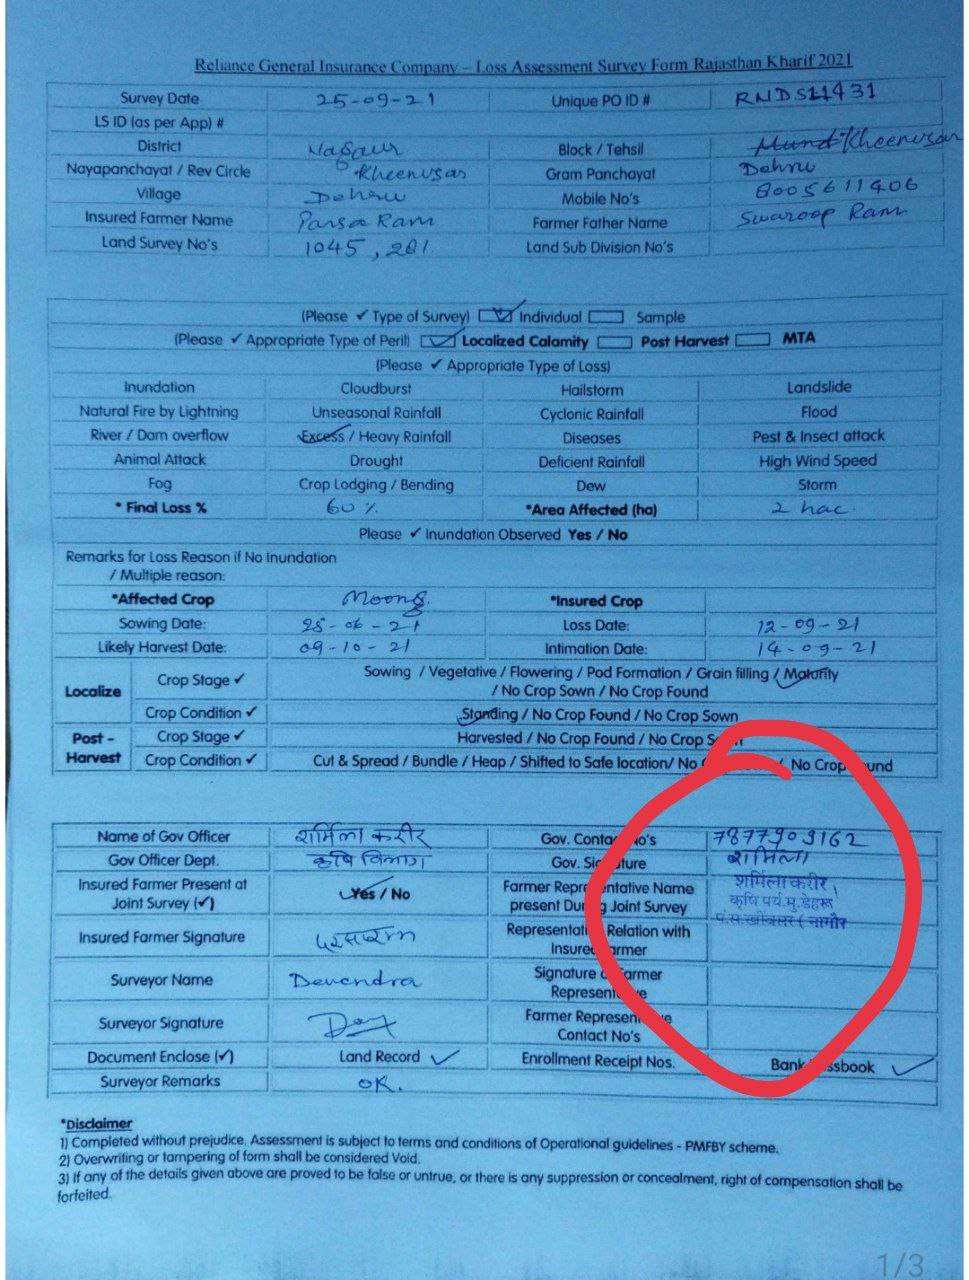 Reliance General Insurance Company – Loss Assessment Survey Form Rajasthan Kharif 2021
Survey Date 25-09-21 Unique PO ID # RNDS11431
LS ID (as per App) #
District Nagaur Block / Tehsil Kheenvsar
Nayapanchayat / Rev Circle Kheenvsar Gram Panchayat Dehru
Village Dehru Mobile No's 8005611406
Insured Farmer Name Parsa Ram Farmer Father Name Swaroop Ram
Land Survey No's 1045, 201 Land Sub Division No's
(Please ✓ Type of Survey) Individual Sample
(Please ✓ Appropriate Type of Peril) Localized Calamity Post Harvest MTA
(Please ✓ Appropriate Type of Loss)
Inundation Cloudburst Hailstorm Landslide
Natural Fire by Lightning Unseasonal Rainfall Cyclonic Rainfall Flood
River / Dam overflow Excess / Heavy Rainfall Diseases Pest & Insect attack
Animal Attack Drought Deficient Rainfall High Wind Speed
Fog Crop Lodging / Bending Dew Storm
* Final Loss % 60 % *Area Affected (ha) 2 hac.
Please ✓ Inundation Observed Yes / No
Remarks for Loss Reason if No Inundation
/ Multiple reason:
*Affected Crop Moong *Insured Crop
Sowing Date: 28-06-21 Loss Date: 12-09-21
Likely Harvest Date: 09-10-21 Intimation Date: 14-09-21
Localize Crop Stage ✓ Sowing / Vegetative / Flowering / Pod Formation / Grain filling / Maturity
/ No Crop Sown / No Crop Found
Crop Condition ✓ Standing / No Crop Found / No Crop Sown
Post - Harvest Crop Stage ✓ Harvested / No Crop Found / No Crop Sown
Crop Condition ✓ Cut & Spread / Bundle / Heap / Shifted to Safe location/ No / No Crop Found
Name of Gov Officer शर्मिला करीर Gov. Contact No's 7877909162
Gov Officer Dept. कृषि विभाग Gov. Signature शर्मिला
Insured Farmer Present at Joint Survey (✓) Yes / No Farmer Representative Name present During Joint Survey
शर्मिला करीर
कृषि पर्य.मु.डेहरू
पं.स.खींवसर ( नागौर
Insured Farmer Signature Representative Relation with Insured Farmer
Surveyor Name Devendra Signature of Farmer Representative
Surveyor Signature Farmer Representative Contact No's
Document Enclose (✓) Land Record ✓ Enrollment Receipt Nos. Bank Passbook ✓
Surveyor Remarks OK.
*Disclaimer
1) Completed without prejudice. Assessment is subject to terms and conditions of Operational guidelines - PMFBY scheme.
2) Overwriting or tampering of form shall be considered Void.
3) If any of the details given above are proved to be false or untrue, or there is any suppression or concealment, right of compensation shall be
forfeited.
1/3